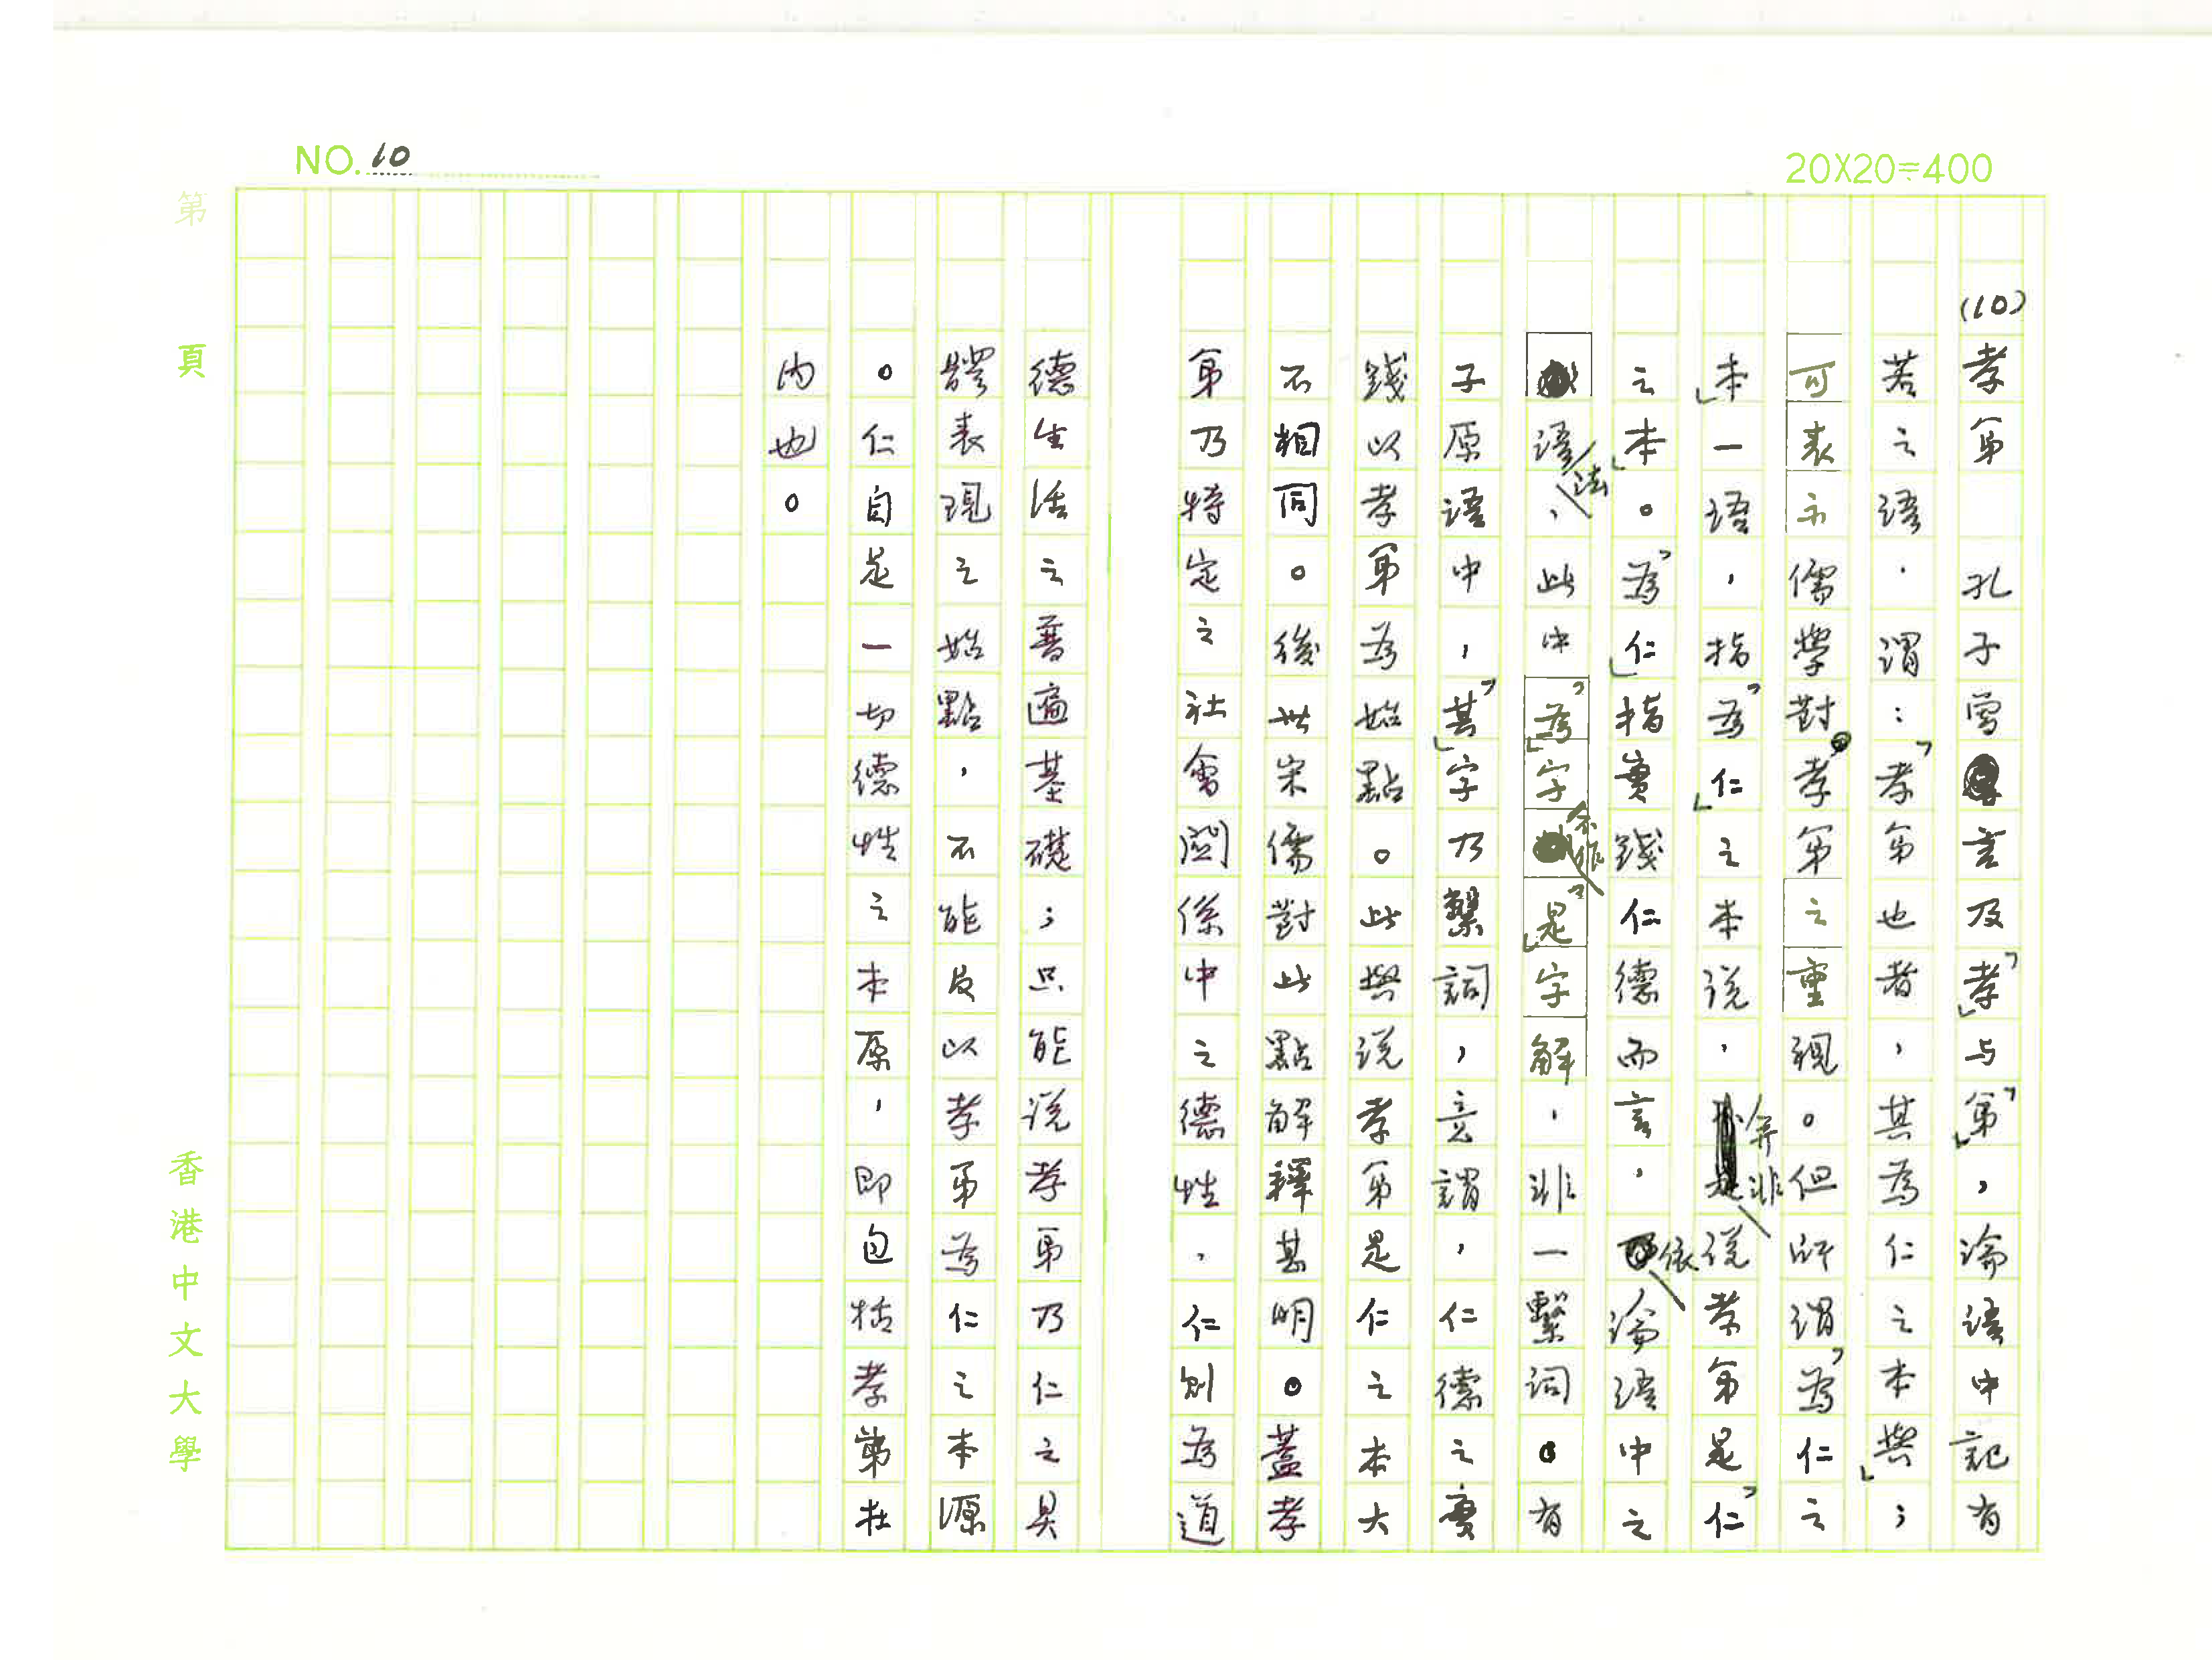 NO. 10
20X20=400
(10)
孝弟 孔子嘗言及「孝」与「弟」，論語中記有
若之語，謂：「孝弟也者，其為仁之本與」；
可表示儒學對孝弟之重視。但所謂「為仁之
本」一語，指「為仁」之本說，并非說孝弟是「仁」
之「本」。「為仁」指實踐仁德而言，依論語中之
語法，此中「為」字不作「是」字解，非一繫詞。有
子原語中，「其」字乃繫詞，意謂，仁德之實
踐以孝弟為始點。此與說孝弟是仁之本大
不相同。後世宋儒對此點解釋甚明。蓋孝
弟乃特定之社會關係中之德性，仁則為道
德生活之普遍基礎；只能說孝弟乃仁之具
體表現之始點，不能反以孝弟為仁之本源
。仁自是一切德性之本原，即包括孝弟在
內也。
第 頁
香港中文大學